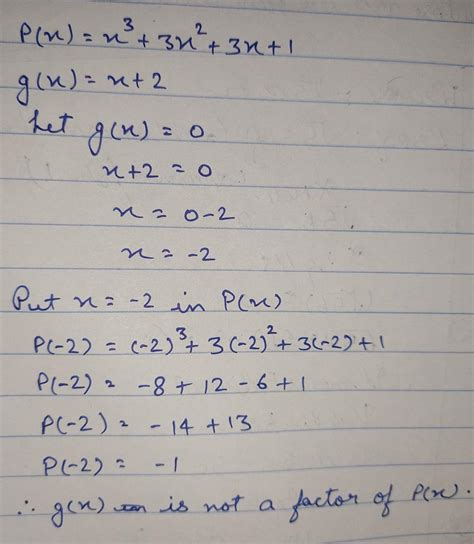 P(x) = x³ + 3x² + 3x + 1
g(x) = x + 2
Let g(x) = 0
x + 2 = 0
x = 0 - 2
x = -2
Put x = -2 in P(x)
P(-2) = (-2)³ + 3(-2)² + 3(-2) + 1
P(-2) = -8 + 12 - 6 + 1
P(-2) = -14 + 13
P(-2) = -1
∴ g(x) is not a factor of P(x).